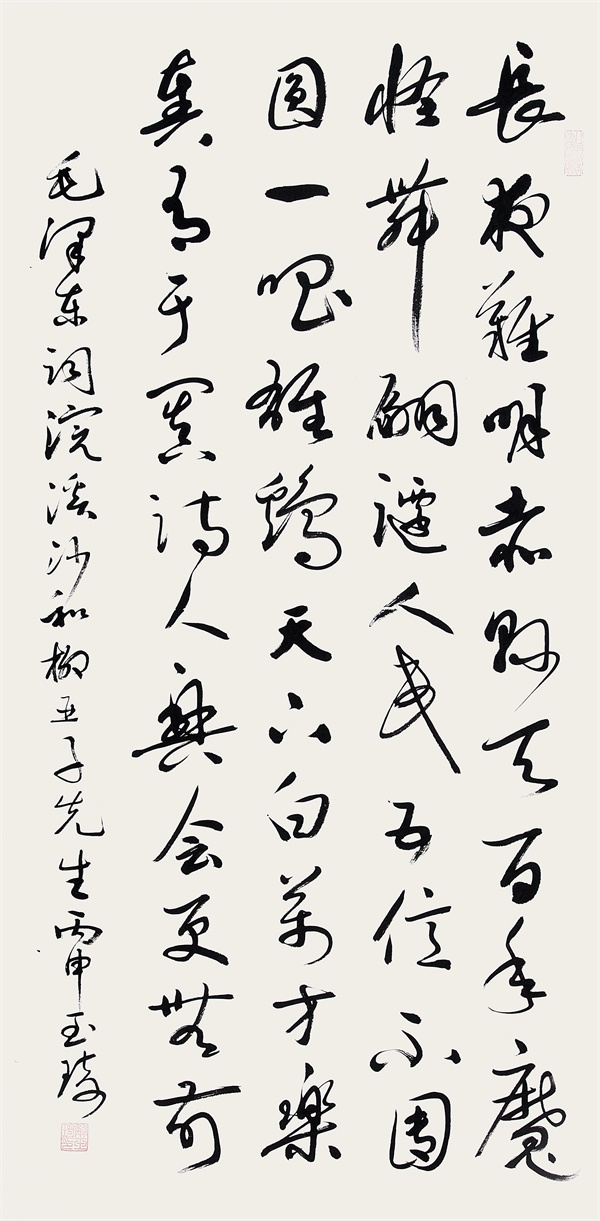 長夜難明赤縣天百年魔
怪舞翩躚人民五億不團
圓一唱雄鷄天下白萬方樂
奏有于闐詩人興会更無前
毛澤东詞浣溪沙和柳亞子先生丙申玉琦